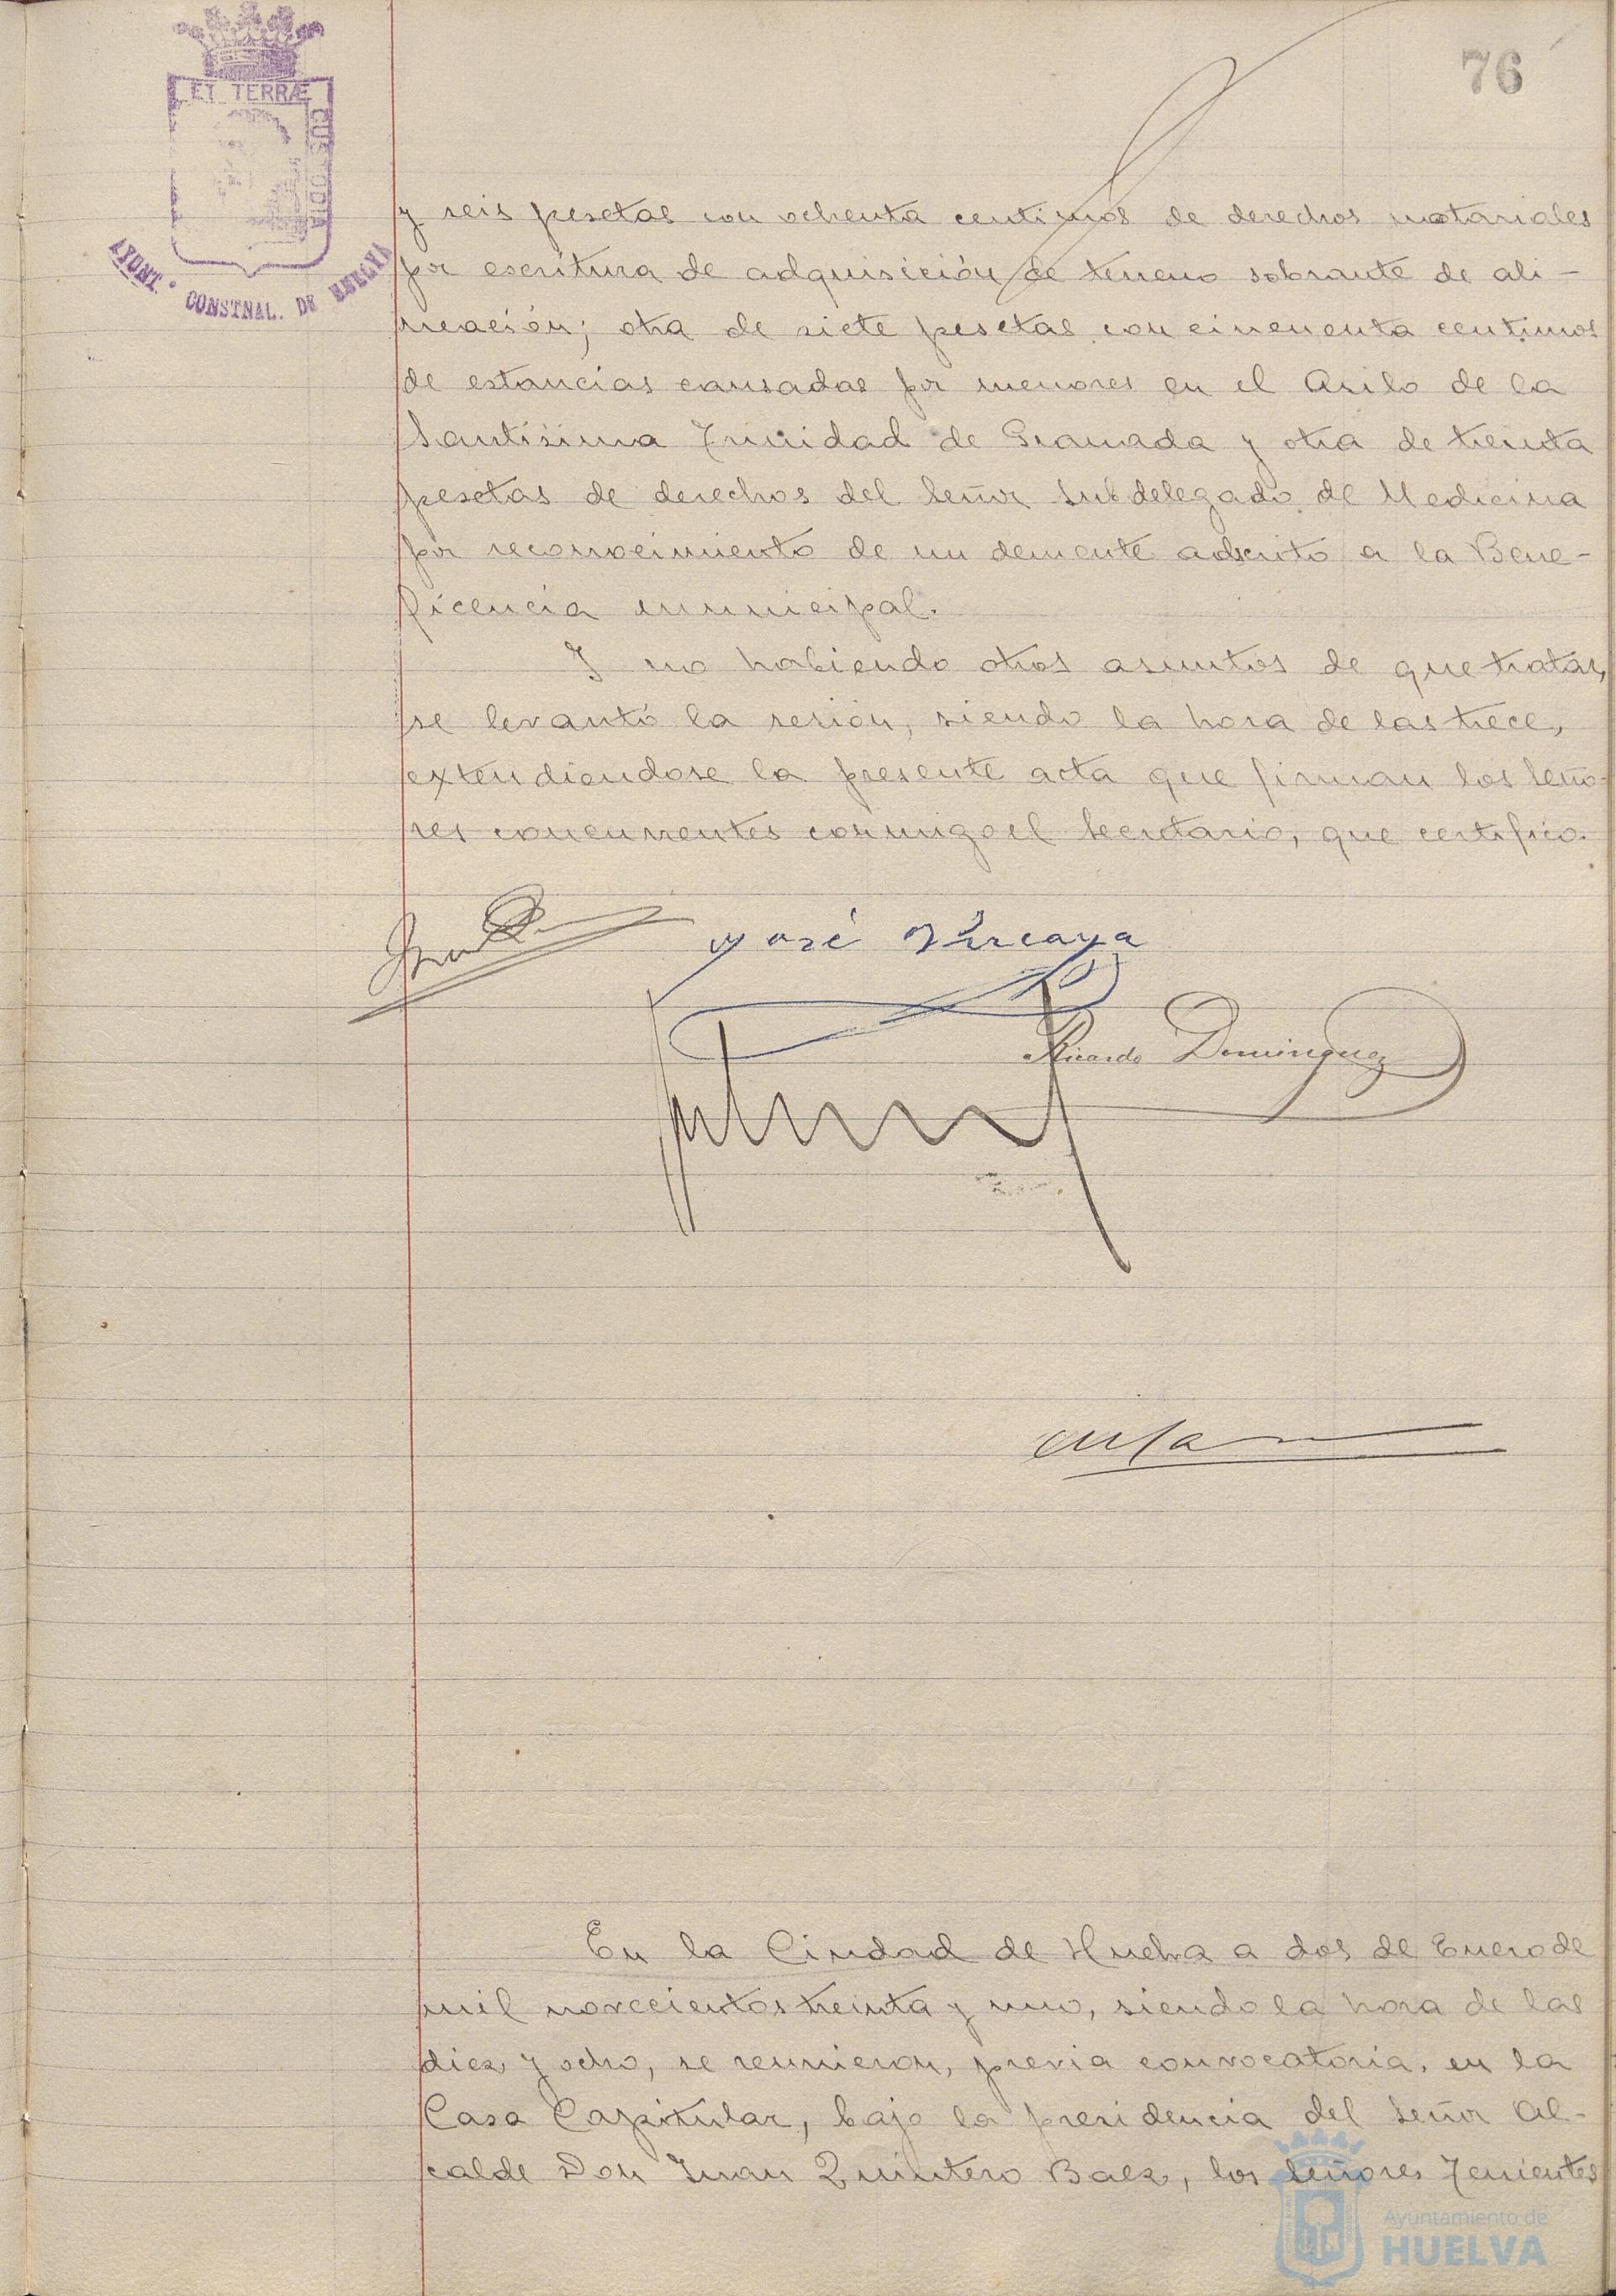 76
ET TERRÆ
CUSTODIA
AYUNT.º CONSTNAL. DE HUELVA
y seis pesetas con ochenta centimos de derechos notariales
por escritura de adquisición de terreno sobrante de ali-
neación; otra de siete pesetas con cincuenta centimos
de estancias causadas por menores en el Asilo de la
Santísima Trinidad de Granada y otra de treinta
pesetas de derechos del Señor Subdelegado de Medicina
por reconocimiento de un demente adscrito a la Bene-
ficencia municipal.
Y no habiendo otros asuntos de que tratar,
se levantó la sesión, siendo la hora de las trece,
extendiendose la presente acta que firman los Seño-
res concurrentes conmigo el Secretario, que certifico.
José Vizcaya
Ricardo Dominguez
En la Ciudad de Huelva a dos de Enero de
mil novecientos treinta y uno, siendo la hora de las
diez y ocho, se reunieron, previa convocatoria, en la
Casa Capitular, bajo la presidencia del Señor Al-
calde Don Juan Quintero Baez, los Señores Tenientes
Ayuntamiento de
HUELVA